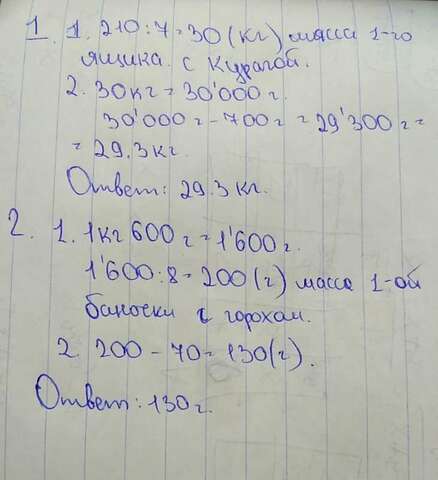 1. 1. 210:7=30(кг) масса 1-го
ящика с курагой.
2. 30кг=30'000г.
30'000г-700г=29'300г=
=29.3кг.
Ответ: 29.3кг.
2. 1. 1кг600г=1'600г.
1'600:8=200(г) масса 1-ой
баночки с горохом.
2. 200-70=130(г).
Ответ: 130г.